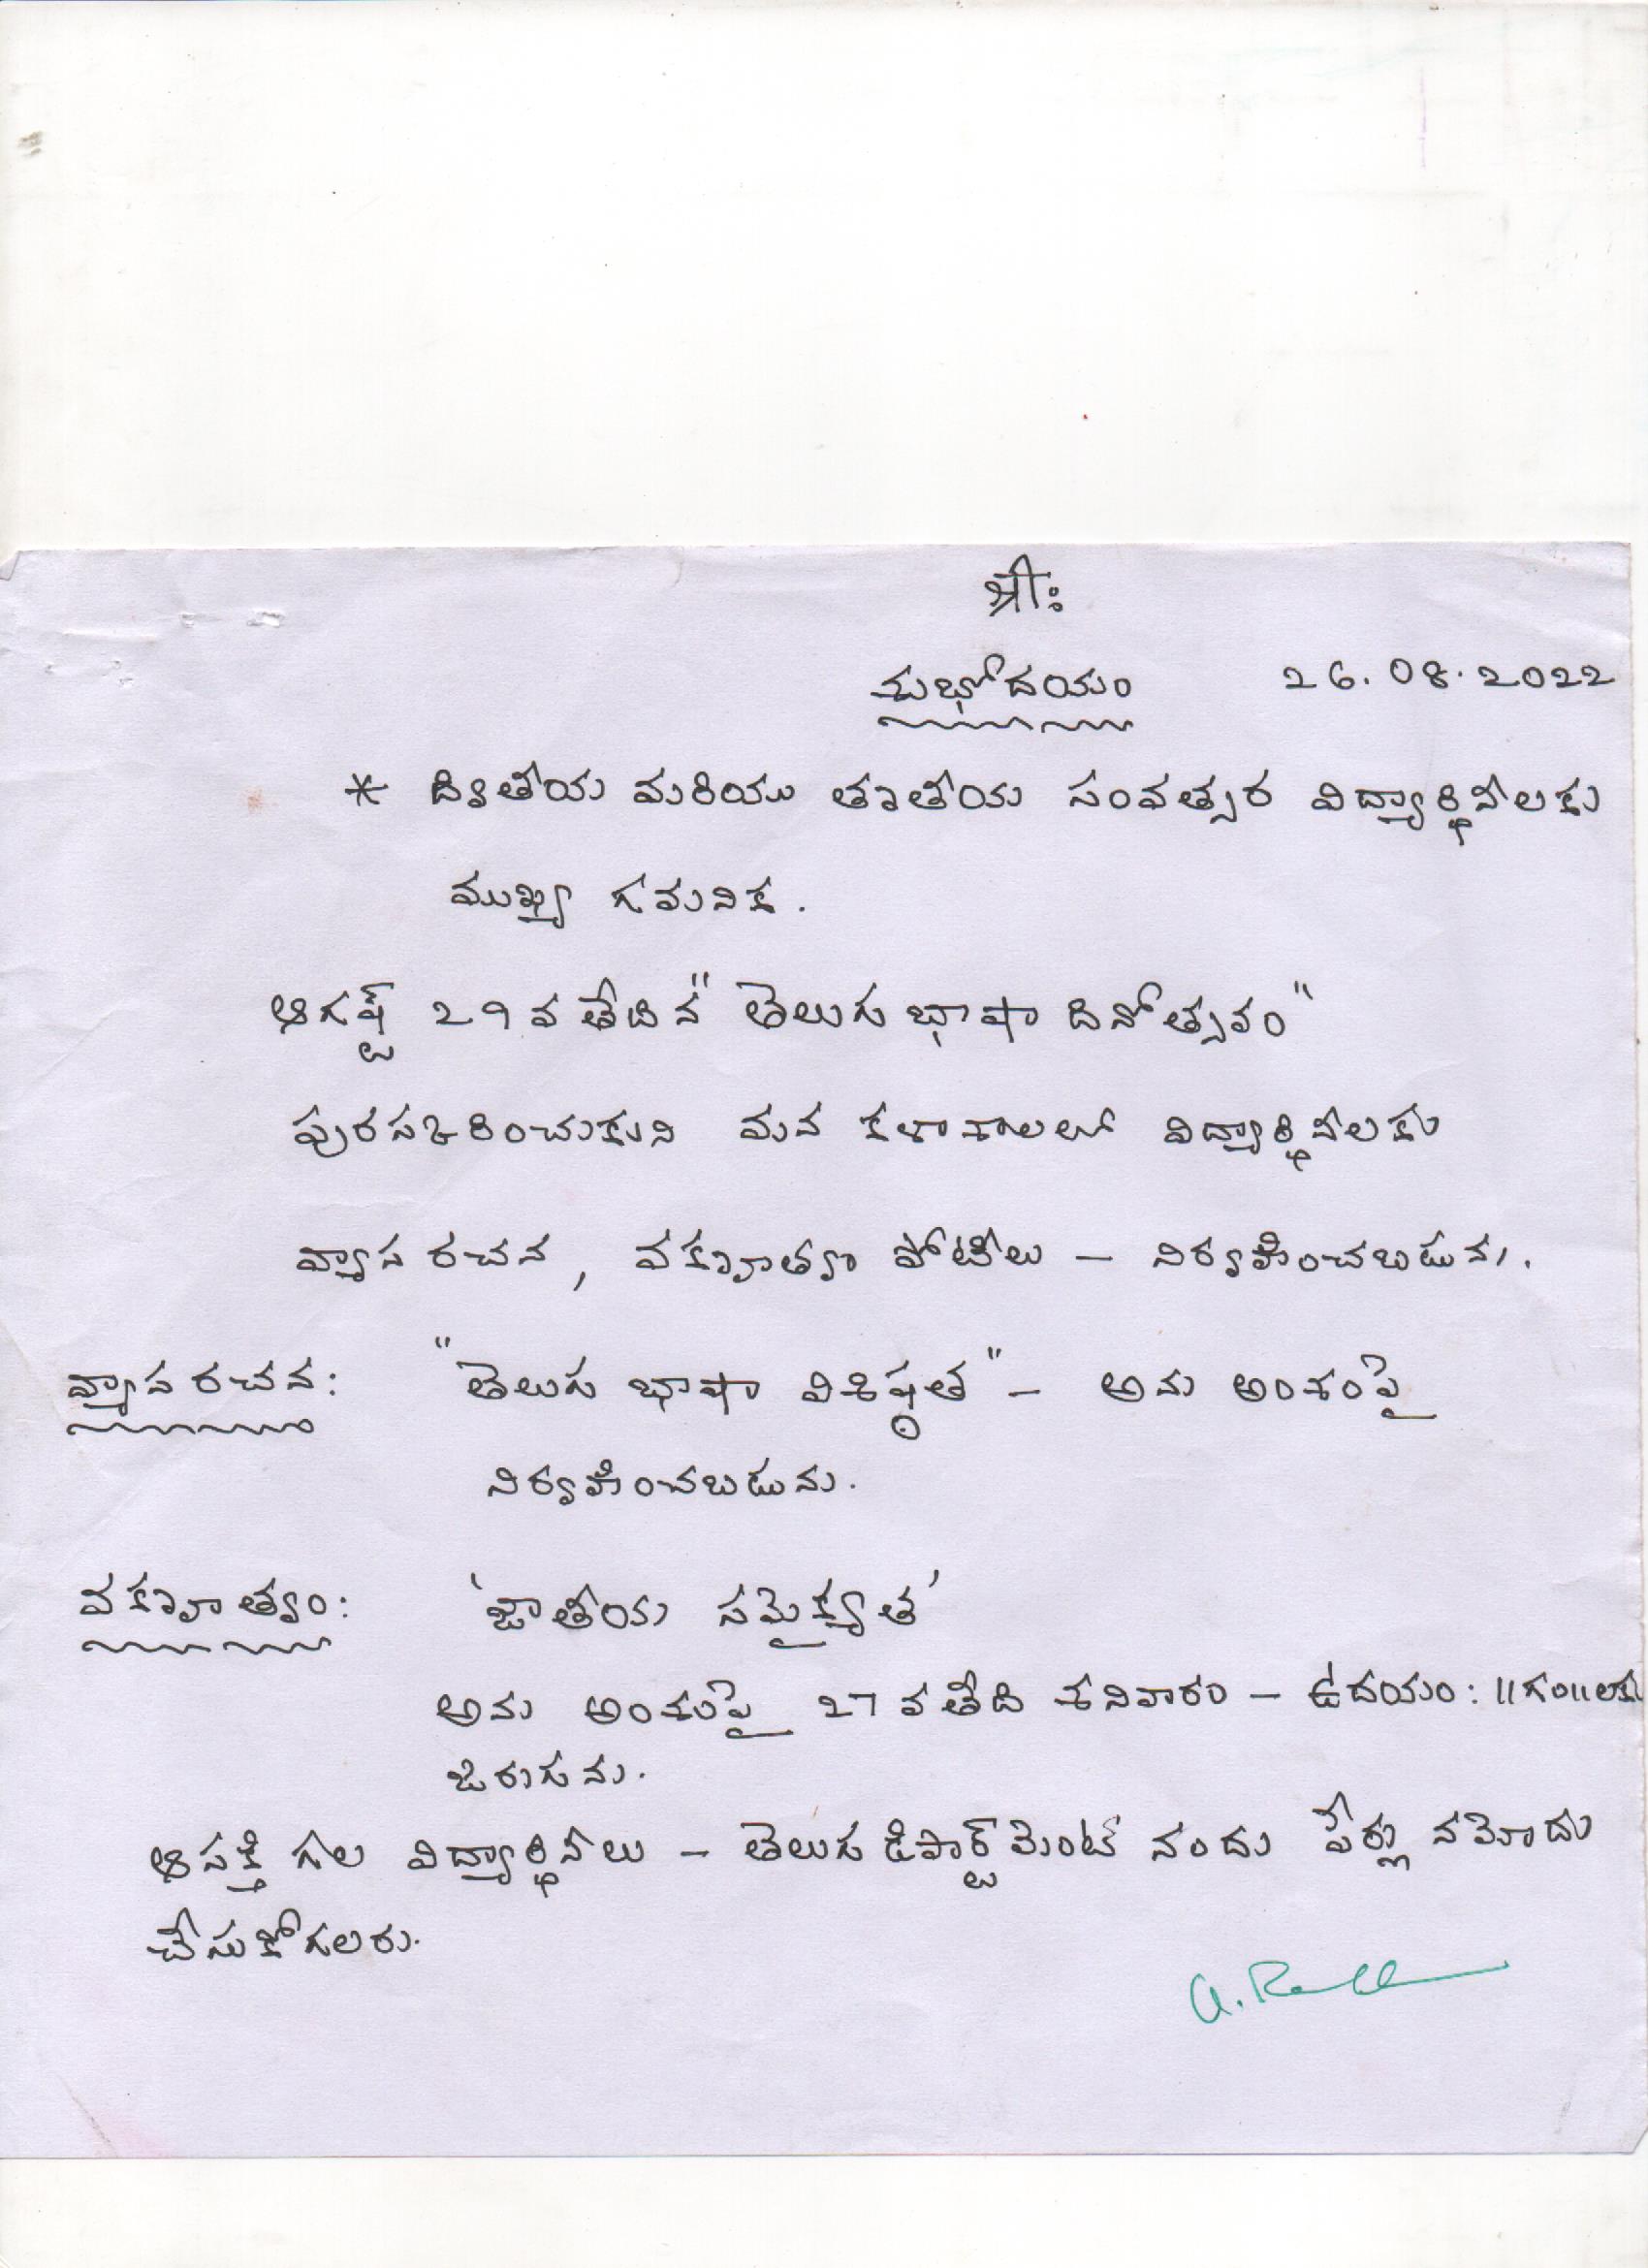 श्रीः
శుభోదయం 26.08.2022
* ద్వితీయ మరియు తృతీయ సంవత్సర విద్యార్థినీలకు
ముఖ్య గమనిక.
ఆగష్ట్ 29 వ తేదిన "తెలుగు భాషా దినోత్సవం"
పురస్కరించుకుని మన కళాశాలలో విద్యార్థినీలకు
వ్యాస రచన, వక్తృత్వ పోటీలు - నిర్వహించబడును.
వ్యాస రచన: "తెలుగు భాషా విశిష్ఠత" - అను అంశంపై
నిర్వహించబడును.
వక్తృత్వం: 'జాతీయ సమైక్యత'
అను అంశంపై 27 వ తేది శనివారం - ఉదయం: 11గం॥లకు
జరుగును.
ఆసక్తి గల విద్యార్థినీలు - తెలుగు డిపార్ట్‌మెంట్ నందు పేర్లు నమోదు
చేసుకోగలరు.